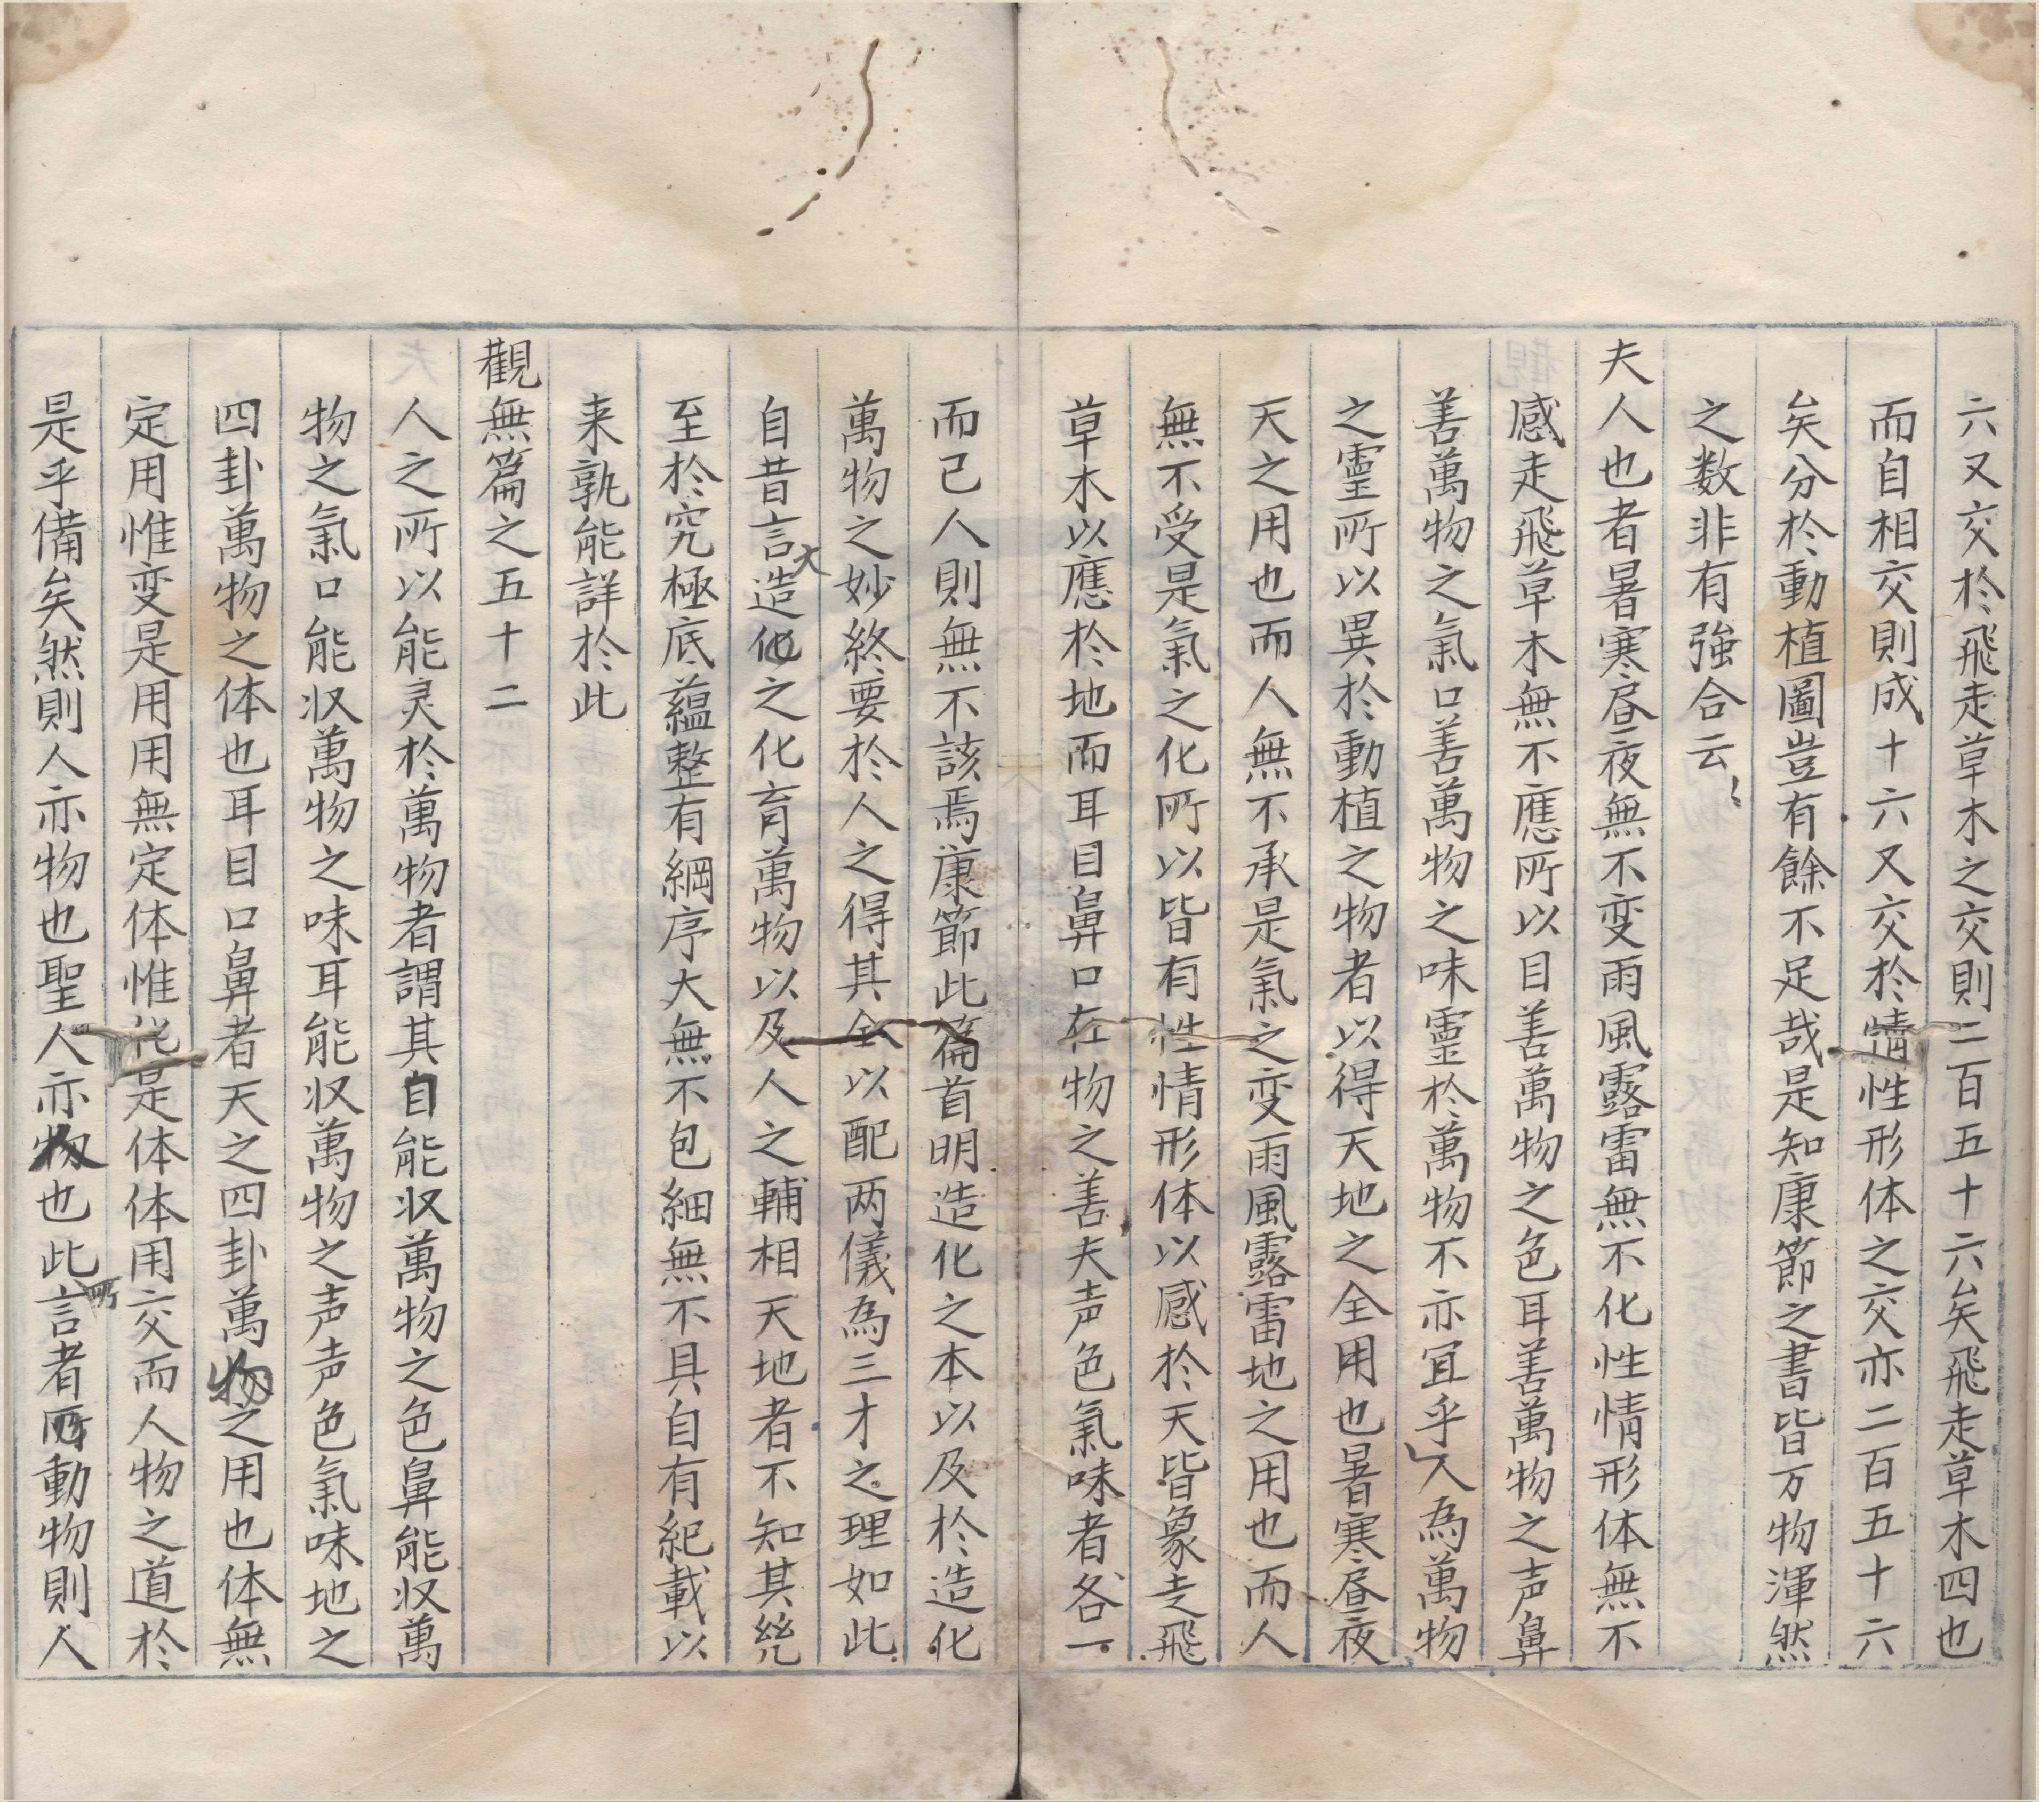 六又交於飛走草木之交則二百五十六矣飛走草木四也
而自相交則成十六又交於情性形体之交亦二百五十六
矣分於動植圖豈有餘不足哉是知康節之書皆万物渾然
之数非有強合云
夫人也者暑寒昼夜無不变雨風露雷無不化性情形体無不
感走飛草木無不應所以目善萬物之色耳善萬物之声鼻
善萬物之氣口善萬物之味靈於萬物不亦宜乎人為萬物
之靈所以異於動植之物者以得天地之全用也暑寒昼夜
天之用也而人無不承是氣之变雨風露雷地之用也而人
無不受是氣之化所以皆有性情形体以感於天皆象走飛
草木以應於地而耳目鼻口在物之善夫声色氣味者各一
而已人則無不該焉康節此篇首明造化之本以及於造化
萬物之妙終要於人之得其全以配两儀為三才之理如此
自昔言大造化之化育萬物以及人之輔相天地者不知其㡬
至於究極底蘊整有綱序大無不包細無不具自有紀載以
来孰能詳於此
觀無篇之五十二
人之所以能灵於萬物者謂其自能収萬物之色鼻能収萬
物之氣口能収萬物之味耳能収萬物之声声色氣味地之
四卦萬物之体也耳目口鼻者天之四卦萬物之用也体無
定用惟变是用用無定体惟化是体体用交而人物之道於
是乎備矣然則人亦物也聖人亦人也此所言者動物則人